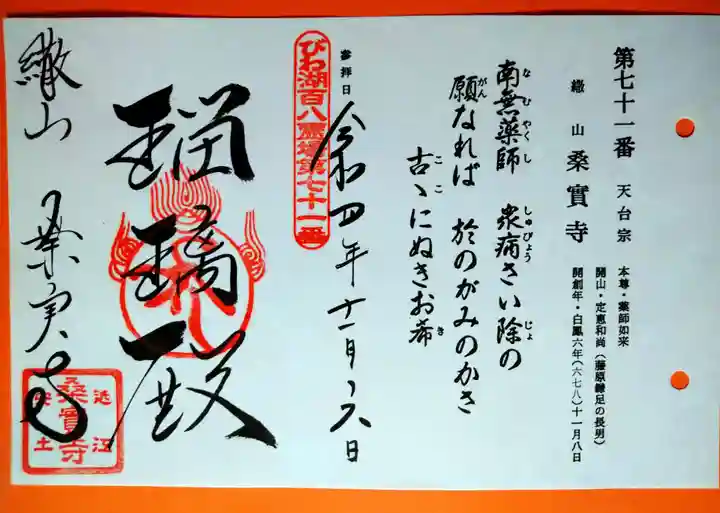 第七十一番 天台宗 本尊・薬師如来
繖山 桑實寺 開山・定恵和尚(藤原鎌足の長男)
開創年・白鳳六年(六七八)十一月八日
南無薬師 衆病さい除の
なむやくし しゅびょう じょ
願なれば 於のがみのかさ
がん
古ゝにぬきお希
ここ き
参拝日
令和四年十一月八日
びわ湖百八霊場第七十一番
瑠璃殿
繖山 桑実寺
近江
桑實寺
安土